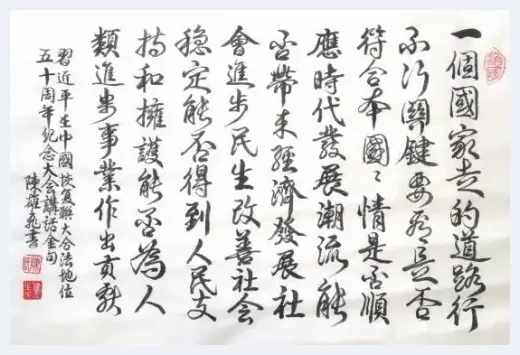 一個國家走的道路行
不行關鍵要看是否
符合本國〻情是否順
應時代發展潮流能
否帶來經濟發展社
會進步民生改善社會
穩定能否得到人民支
持和擁護能否為人
類進步事業作出貢獻
習近平在中國恢復聯大合法地位
五十周年紀念大會講話金句
陳雄飛書